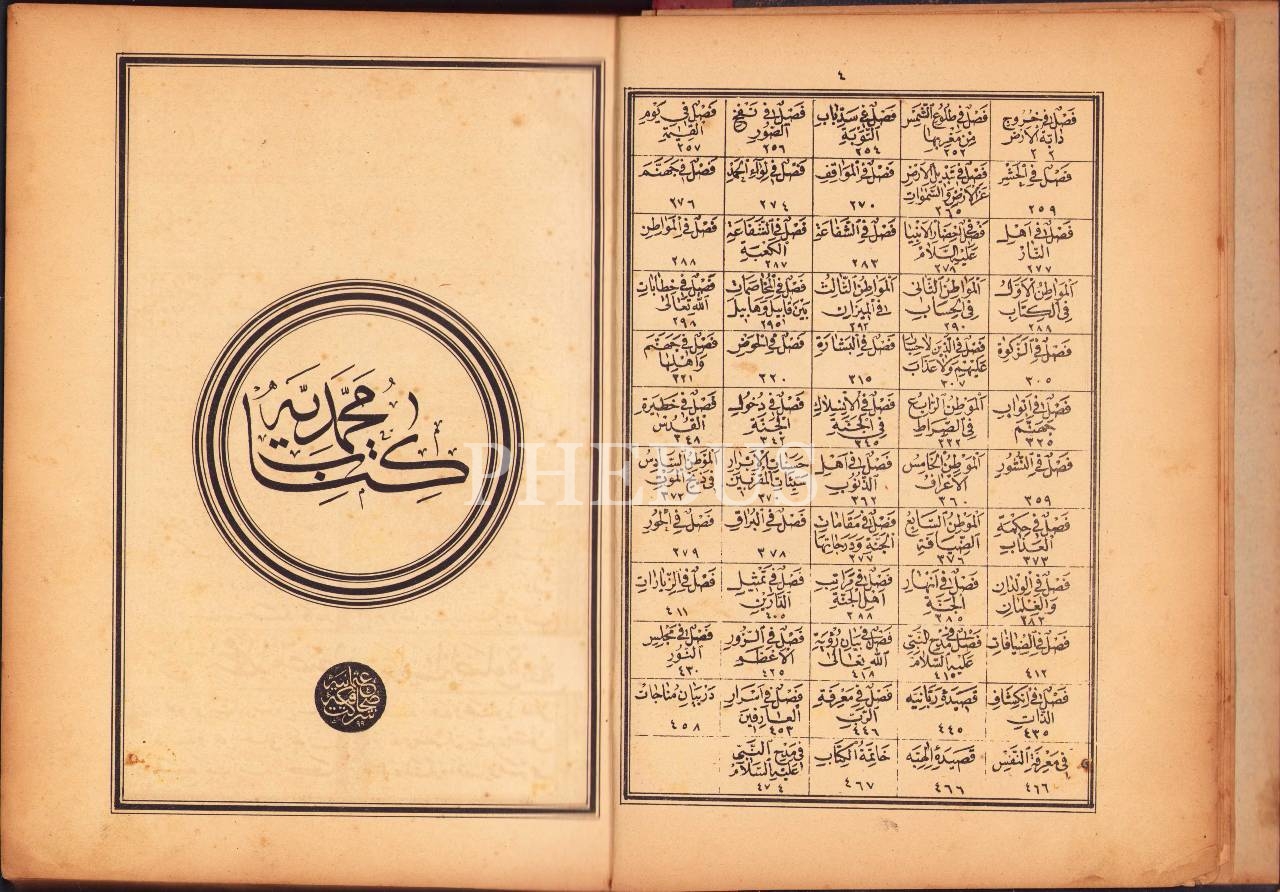 ٤
فصل فى خروج دابة الارض
فصل فى طلوع الشمس من مغربها ٢٥٢
فصل فى سد باب التوبة ٢٥٤
فصل فى نفخ الصور ٢٥٦
فصل فى يوم القيمة ٢٥٧
فصل فى الحشر ٢٥٩
فصل فى تبديل الارض غير الارض والسموات ٢٦٥
فصل فى المواقف ٢٧٠
فصل فى لواء الحمد ٢٧٤
فصل فى جهنم ٢٧٦
فصل فى اهل النار ٢٧٧
فصل فى احضار الانبيا عليهم السلام ٢٧٨
فصل فى الشفاعة ٢٨٣
فصل فى الشفاعة الكعبة ٢٨٧
فصل فى المواطن ٢٨٨
المواطن الاول فى الكتاب ٢٨٩
المواطن الثانى فى الحساب ٢٩٠
المواطن الثالث فى الميزان ٢٩٣
فصل فى المخاصمات بين قابيل وهابيل ٢٩٥
فصل فى خطابات الله تعالى ٢٩٨
فصل فى الزكوة ٣٠٥
فصل فى الذين لا حساب عليهم ولا عذاب ٣٠٧
فصل فى البشارة ٣١٥
فصل فى الحوض ٣٢٠
فصل فى جهنم واهلها ٣٢١
فصل فى ابواب جهنم ٣٢٥
الموطن الرابع فى الصراط ٣٣٢
فصل فى دخول الجنة ٣٤٢
فصل فى حظيرة القدس ٣٤٨
فصل فى النشور ٣٥٩
الموطن الخامس الاعراف ٣٦٠
فصل فى اهل الذنوب ٣٦٢
حسنات الابرار سيئات المقربين
الموطن السادس فى ذبح الموت ٣٧٢
فصل فى حكمة العذاب ٣٧٣
الموطن السابع الضيافة ٣٧٦
فصل فى مقامات الجنة ودرجاتها ٣٧٧
فصل فى البراق ٣٧٨
فصل فى الحور ٣٧٩
فصل فى الولدان والغلمان ٣٨٢
فصل فى انهار الجنة ٣٨٥
فصل فى مراتب اهل الجنة ٣٨٨
فصل فى تمثيل الدارين ٤٠٥
فصل فى الزيارات ٤١١
فصل فى الضيافات ٤١٢
فصل فى مدح النبى عليه السلام ٤١٥
فصل فى بيان رؤية الله تعالى ٤١٨
فصل فى الزور الاعظم ٤٢٥
فصل فى مجلس النور ٤٣٠
فصل فى انكشاف الذات ٤٣٥
قصيدة ربانيه ٤٤٥
فصل فى معرفة الرب ٤٤٦
فصل فى اسرار العارفين ٤٥٣
در بيان مناجات ٤٥٨
فى معرفة النفس ٤٦٦
قصيدة الهيه ٤٦٦
خاتمة الكتاب ٤٦٧
فى مدح النبى عليه السلام ٤٧٤
كتاب محمديه
شركت صحافيه عثمانيه
PHEBUS